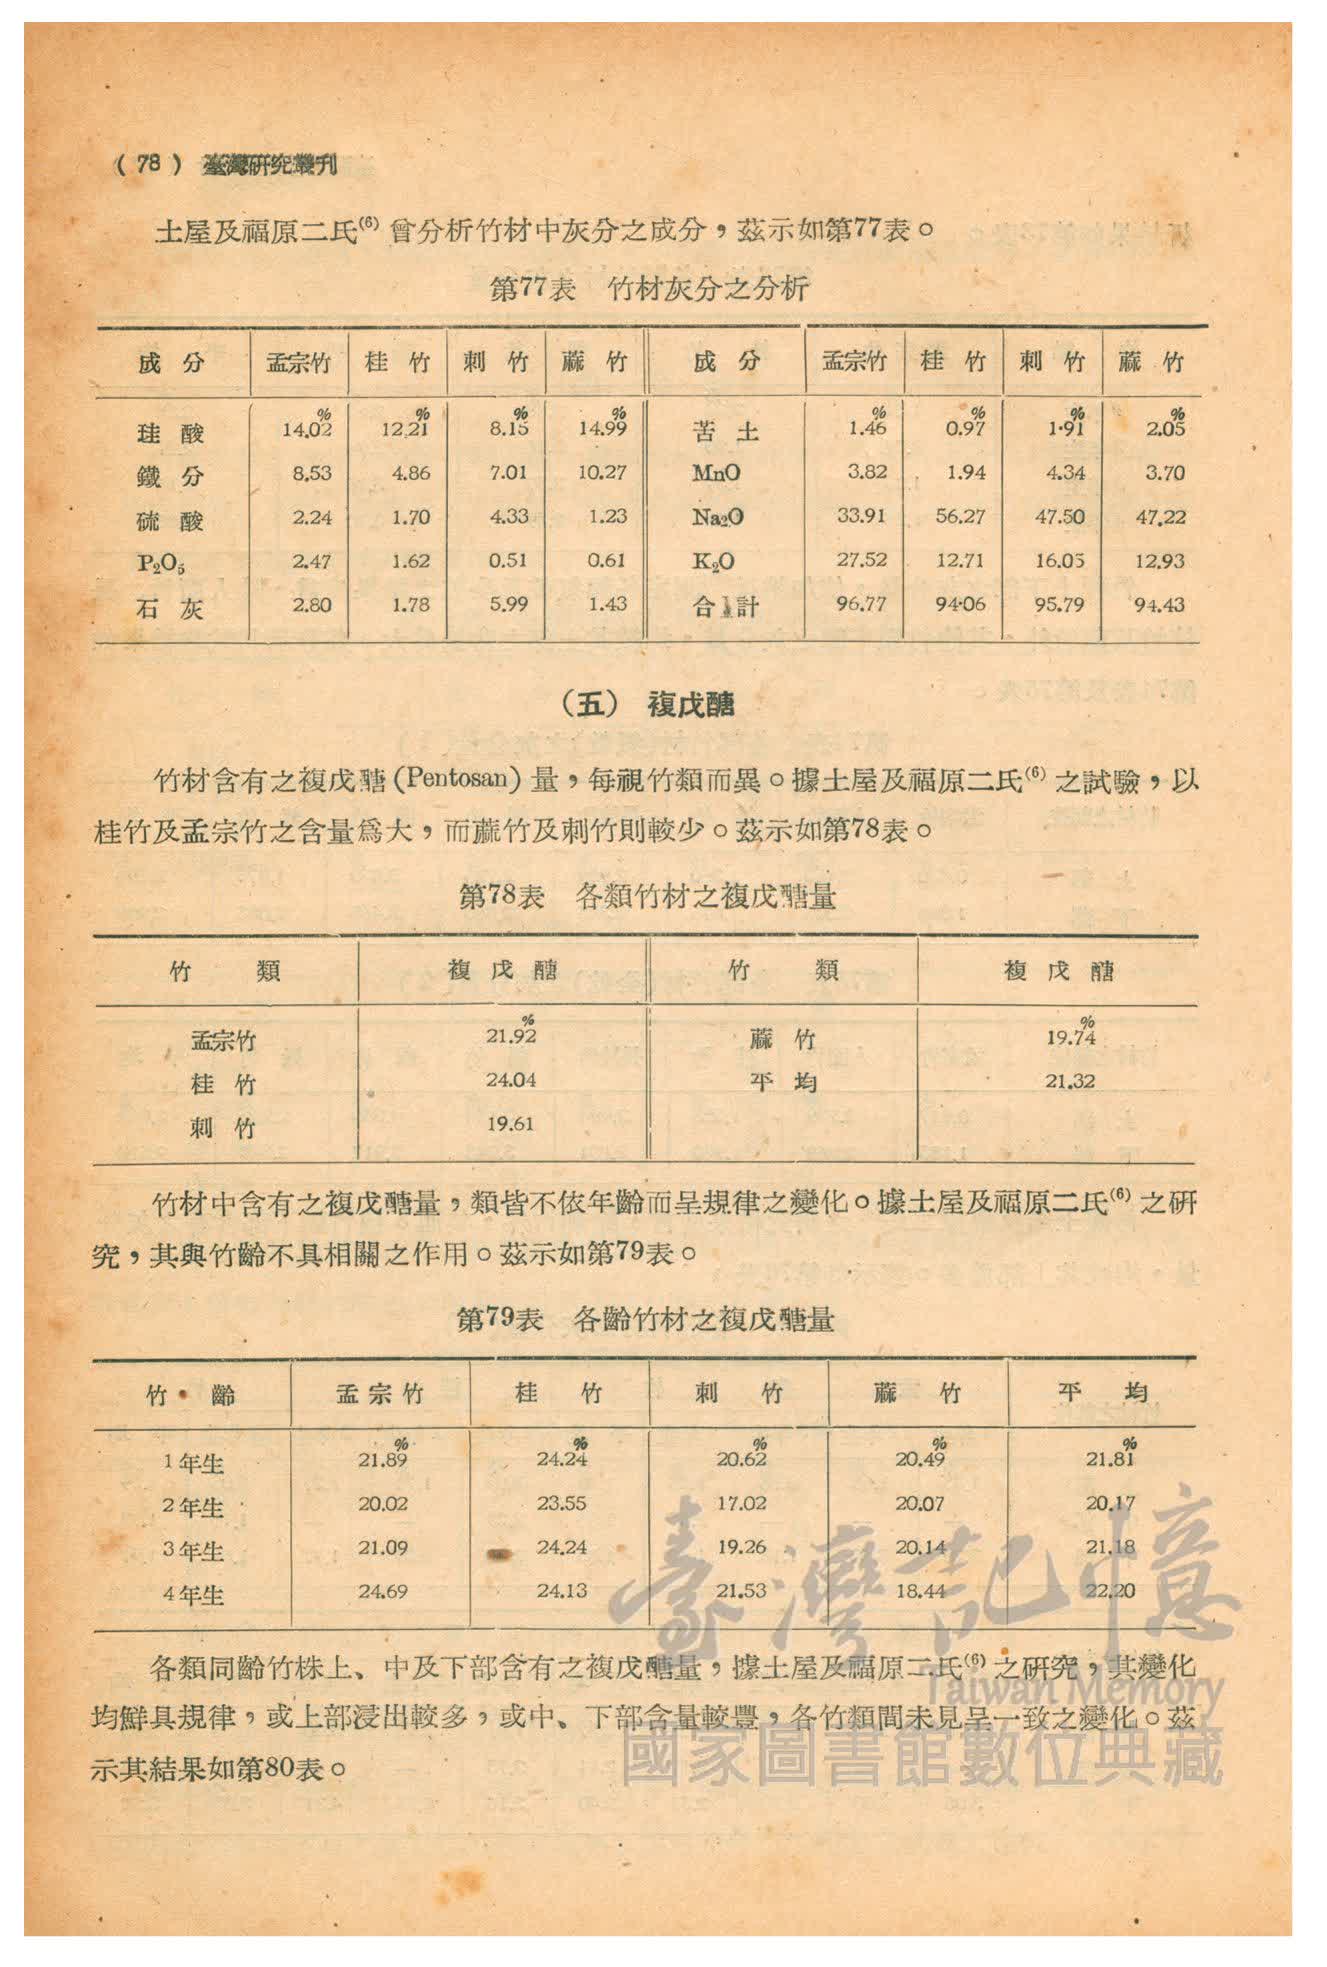 (78) 臺灣研究叢刊
土屋及福原二氏(6)曾分析竹材中灰分之成分，茲示如第77表。
第77表　竹材灰分之分析
成　分　孟宗竹　桂　竹　刺　竹　蔴　竹　成　分　孟宗竹　桂　竹　刺　竹　蔴　竹
% % % % % % % %
珪　酸　14.02　12.21　8.15　14.99　苦　土　1.46　0.97　1.91　2.05
鐵　分　8.53　4.86　7.01　10.27　MnO　3.82　1.94　4.34　3.70
硫　酸　2.24　1.70　4.33　1.23　Na₂O　33.91　56.27　47.50　47.22
P₂O₅　2.47　1.62　0.51　0.61　K₂O　27.52　12.71　16.05　12.93
石　灰　2.80　1.78　5.99　1.43　合計　96.77　94.06　95.79　94.43
（五）　複戊醣
竹材含有之複戊醣(Pentosan)量，每視竹類而異。據土屋及福原二氏(6)之試驗，以
桂竹及孟宗竹之含量爲大，而蔴竹及刺竹則較少。茲示如第78表。
第78表　各類竹材之複戊醣量
竹　類　複戊醣　竹　類　複戊醣
% %
孟宗竹　21.92　蔴　竹　19.74
桂　竹　24.04　平　均　21.32
刺　竹　19.61
竹材中含有之複戊醣量，類皆不依年齡而呈規律之變化。據土屋及福原二氏(6)之研
究，其與竹齡不具相關之作用。茲示如第79表。
第79表　各齡竹材之複戊醣量
竹　齡　孟宗竹　桂　竹　刺　竹　蔴　竹　平　均
% % % % %
1年生　21.89　24.24　20.62　20.49　21.81
2年生　20.02　23.55　17.02　20.07　20.17
3年生　21.09　24.24　19.26　20.14　21.18
4年生　24.69　24.13　21.53　18.44　22.20
各類同齡竹株上、中及下部含有之複戊醣量，據土屋及福原二氏(6)之研究，其變化
均鮮具規律，或上部浸出較多，或中、下部含量較豐，各竹類間未見呈一致之變化。茲
示其結果如第80表。
臺灣記憶
Taiwan Memory
國家圖書館數位典藏